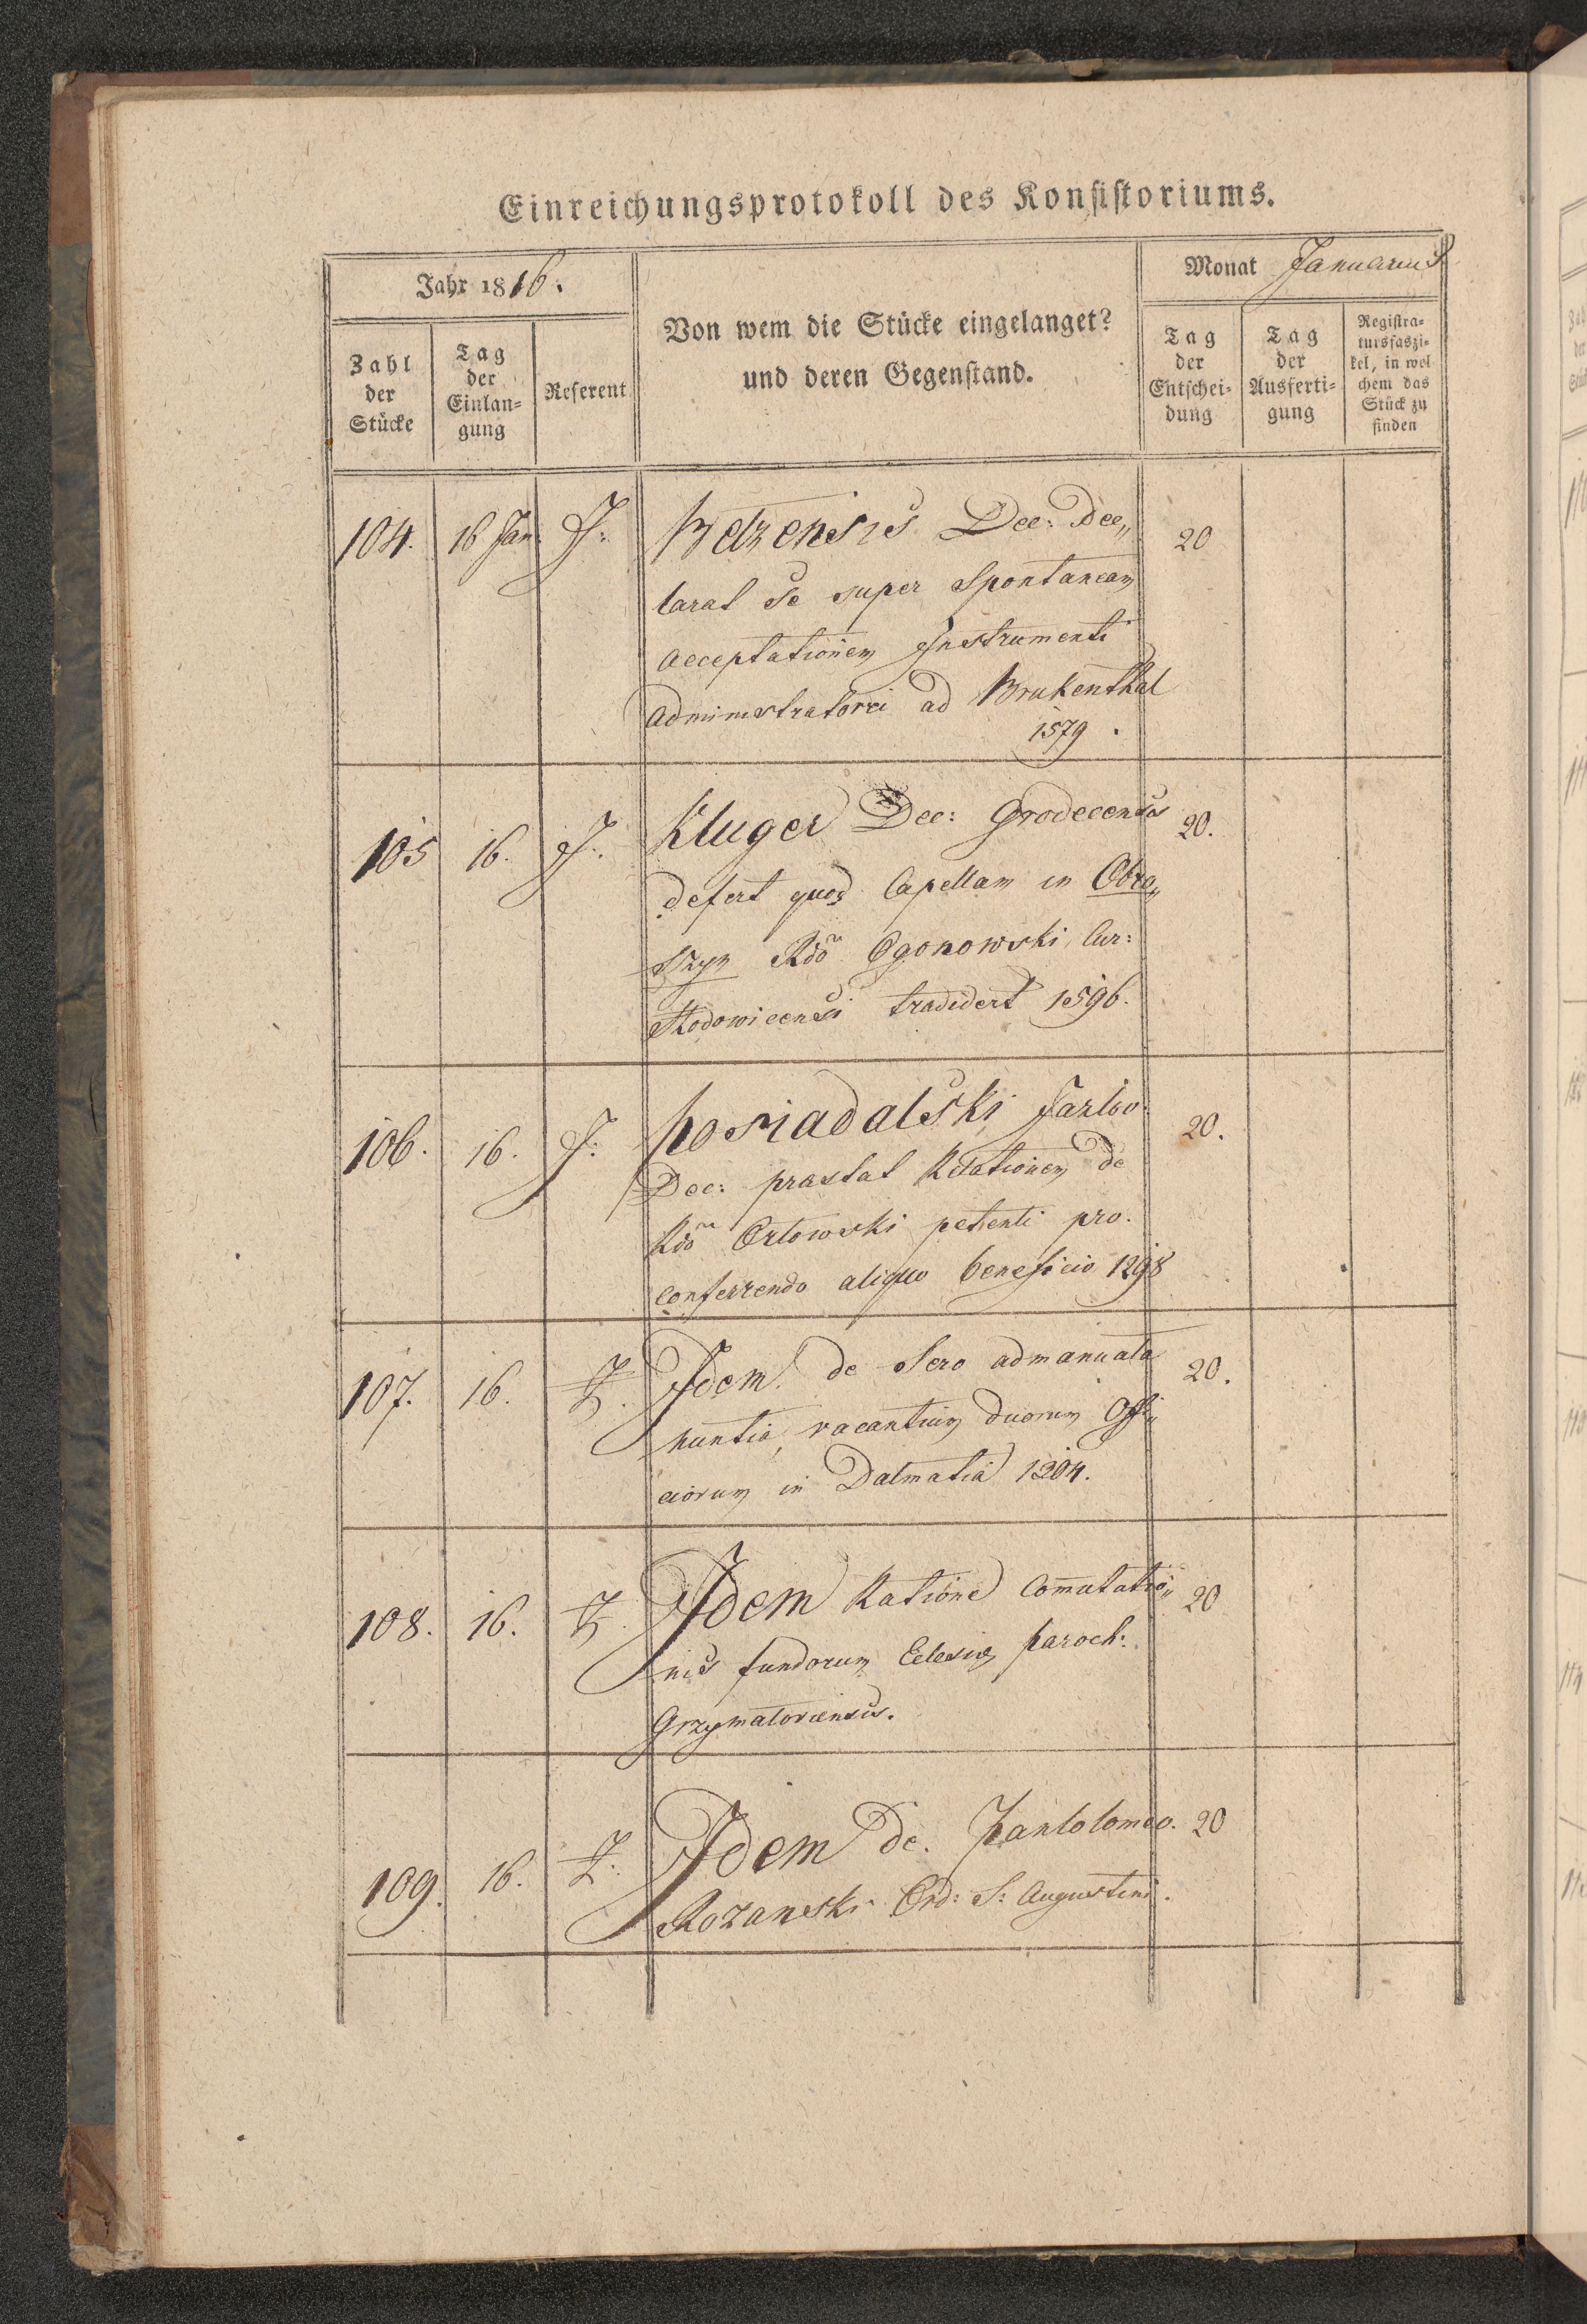 Einreichungsprotokoll des Konsistoriums.
Jahr 1816.
Monat Januarius
Zahl der Stücke
Tag der Einlangung
Referent
Von wem die Stücke eingelanget?
und deren Gegenstand.
Tag der Entscheidung
Tag der Ausfertigung
Registratursfaszikel, in welchem das Stück zu finden
104. 16 Jan. J. Belzensis Dec: Dec„ 20
larat se super Spontaneam
acceptationem Instrumenti
administratorii ad Brukenthal
1579.
105 16. J. Kluger Dec: Grodecensis 20.
defert quod Capellam in Obro„
szyn Rdõ Ogonowski Cur:
Rodowicensi tradidert 1596.
106. 16. J. Posiadalski Jazlov: 20.
Dec: prastat Relationem de
Rdõ Orlowski petenti pro.
conferrendo aliquo beneficio 1298
107. 16. Z. Idem. de Sero admanuata 20.
nuntia, vacantium duorum Offi„
ciorum in Dalmatia 1204.
108. 16. Z. Idem Ratione Com̄utatio„ 20
nis fundorum Eclesiæ paroch:
Grzymaloviensis.
109. 16. Z. Idem de. Pantolomeo. 20
Rozanski Ord: S: Augustini.